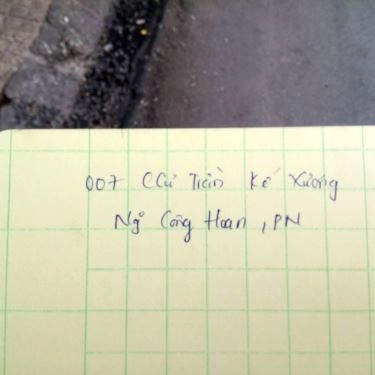 007 CCư Trần Kế Xương
Ng Công Hoan, PN